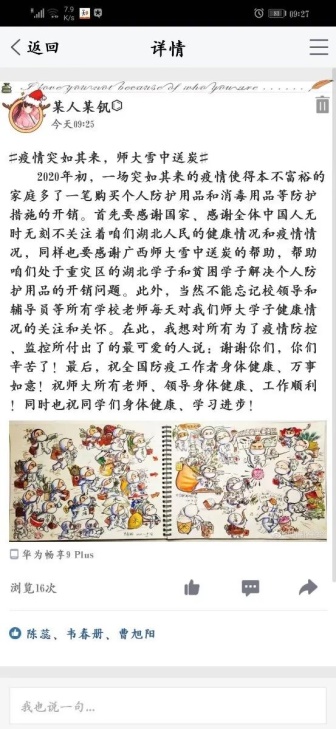 7.9
K/s
09:27
返回
详情
I love you not because of who you are
某人某钗
今天09:25
::疫情突如其来，师大雪中送炭::
2020年初，一场突如其来的疫情使得本不富裕的
家庭多了一笔购买个人防护用品和消毒用品等防护
措施的开销。首先要感谢国家、感谢全体中国人无
时无刻不关注着咱们湖北人民的健康情况和疫情情
况，同样也要感谢广西师大雪中送炭的帮助，帮助
咱们处于重灾区的湖北学子和贫困学子解决个人防
护用品的开销问题。此外，当然不能忘记校领导和
辅导员等所有学校老师每天对我们师大学子健康情
况的关注和关怀。在此，我想对所有为了疫情防控
、监控所付出了的最可爱的人说：谢谢你们，你们
辛苦了！最后，祝全国防疫工作者身体健康、万事
如意！祝师大所有老师、领导身体健康、工作顺利
！同时也祝同学们身体健康、学习进步！
华为畅享9 Plus
浏览16次
陈蕊、韦春册、曹旭阳
我也说一句...